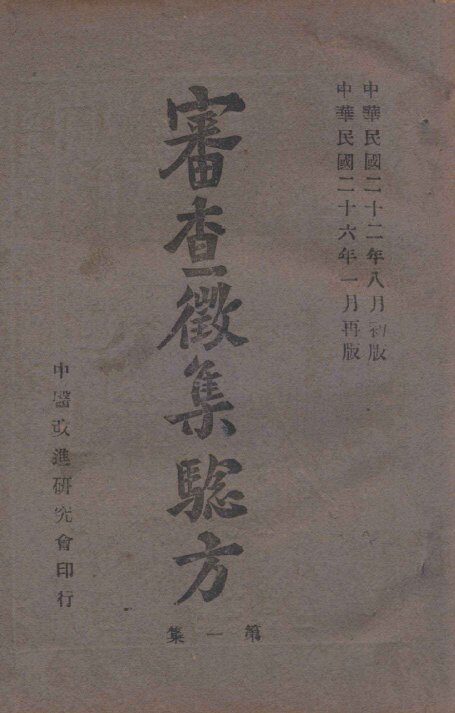 中華民國二十二年八月初版
中華民國二十六年一月再版
審查徵集驗方
第一集
中醫改進研究會印行